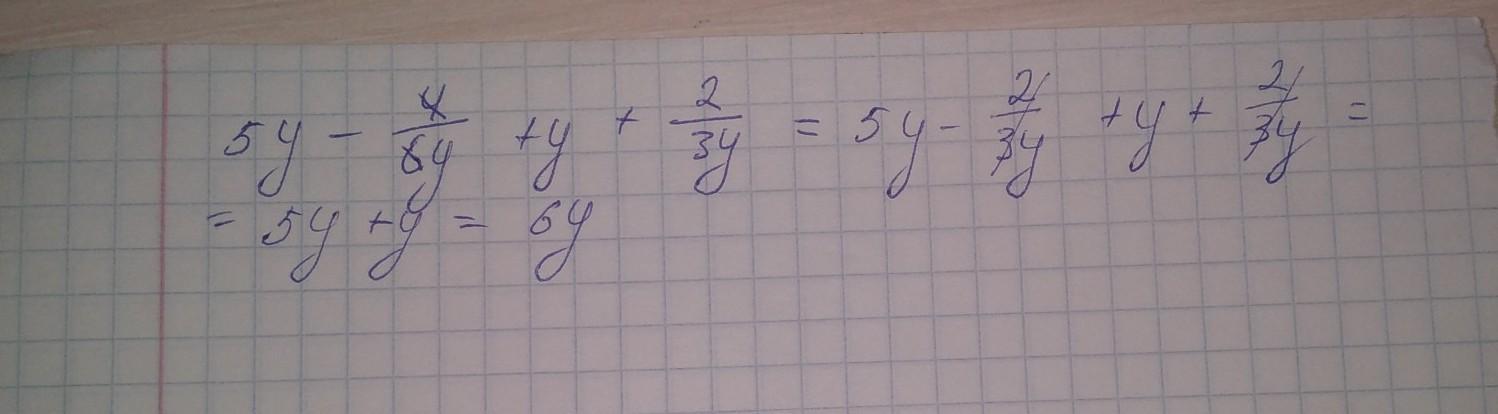 5y - 4/6y + y + 2/3y = 5y - 2/3y + y + 2/3y =
= 5y + y = 6y